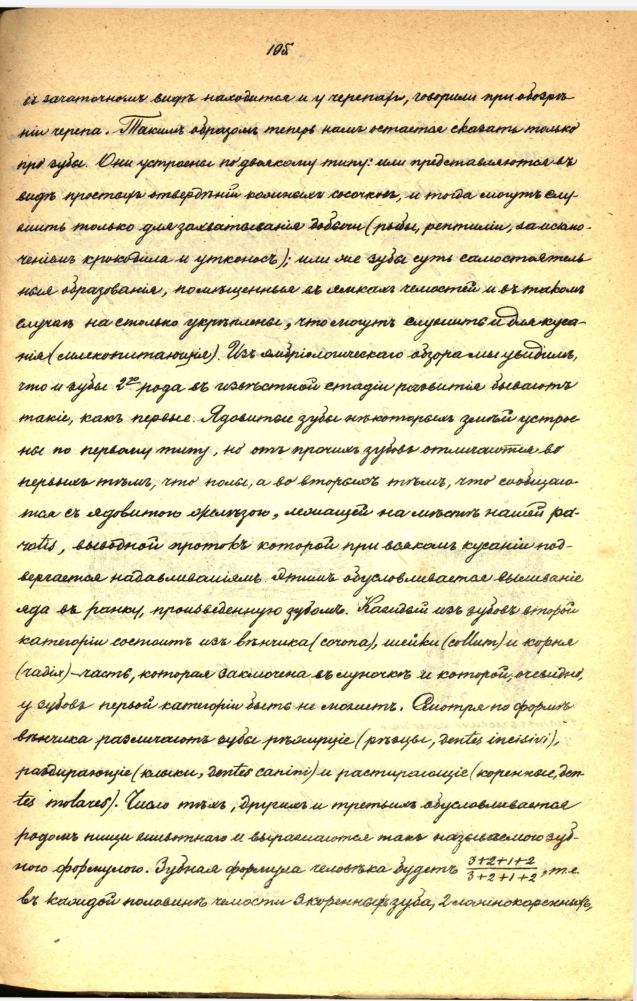 195
въ зачаточномъ видѣ находится и у черепахъ, говорили при обозрѣ-
ніи черепа. Такимъ образомъ теперь намъ остается сказать только
про зубы. Они устроены по двоякому типу: или представляются въ
видѣ простыхъ отвердѣній кожныхъ сосочковъ, и тогда могутъ слу-
жить только для захватыванія добычи (рыбы, рептиліи, за исклю-
ченіемъ крокодила и утконосъ); или же зубы суть самостоятель
ныя образованія, помѣщенныя въ ямкахъ челюстей и въ такомъ
случаѣ на столько укрѣплены, что могутъ служить и для куса-
нія (млекопитающіе). Изъ эмбріологическаго обзора мы увидимъ,
что и зубы 2го рода въ извѣстной стадіи развитія бываютъ
такіе, какъ первые. Ядовитые зубы нѣкоторыхъ змѣй устрое
ны по первому типу, но отъ прочихъ зубовъ отличаются во
первыхъ тѣмъ, что полы, а во вторыхъ тѣмъ, что сообщаю
тся съ ядовитою желѣзою, лежащей на мѣстѣ нашей pa-
rotis, выводной протокъ которой при всякомъ кусаніи под-
вергается надавливаніямъ. Этимъ обусловливается выливаніе
яда въ ранку, произведенную зубомъ. Каждый изъ зубовъ второй
категоріи состоитъ изъ вѣнчика (corona), шейки (collum) и корня
(radix) – часть, которая заключена въ луночкѣ и которой, очевидно,
у зубовъ первой категоріи быть не можетъ. Смотря по формѣ
вѣнчика различаютъ зубы рѣжущіе (рѣзцы, dentes incisivi),
раздирающіе (клыки, dentes canini) и растирающіе (коренные, den-
tes molares). Число тѣхъ, другихъ и третьихъ обусловливается
родомъ пищи животнаго и выражаются такъ называемою зуб-
ною формулою. Зубная формула человѣка будетъ 3+2+1+2/3+2+1+2, т.е.
въ каждой половинѣ челюсти 3 коренныхъ зуба, 2 ложнокоренныхъ,